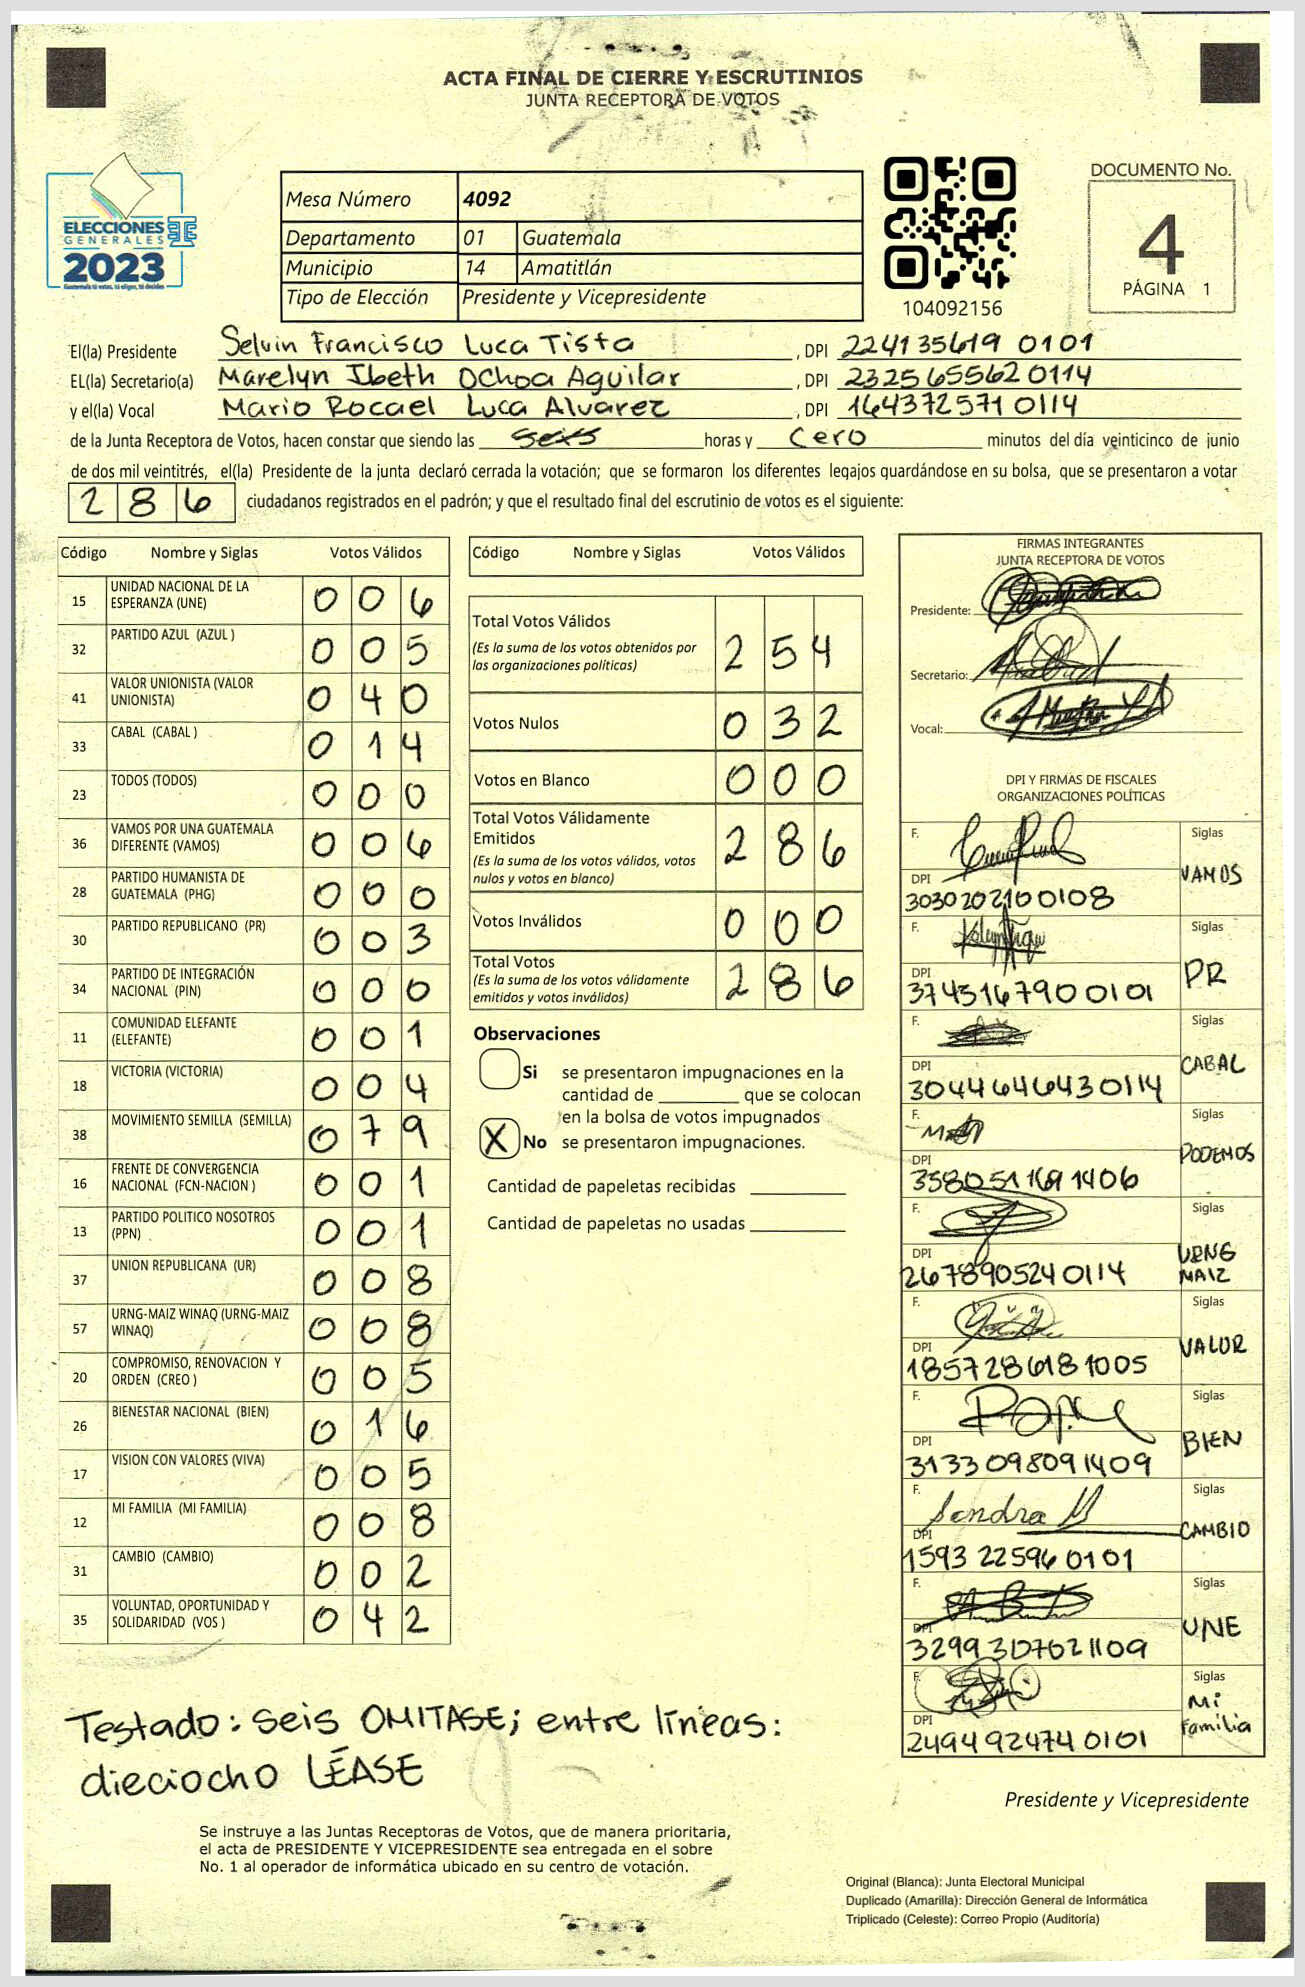 ACTA FINAL DE CIERRE Y ESCRUTINIOS
JUNTA RECEPTORA DE VOTOS
ELECCIONES
GENERALES
2023
Mesa Número 4092
Departamento 01 Guatemala
Municipio 14 Amatitlán
Tipo de Elección Presidente y Vicepresidente
104092156
DOCUMENTO No.
4
PÁGINA 1
El(la) Presidente Selvin Francisco Luca Tista , DPI 224135619 0101
EL(la) Secretario(a) Marelyn Ibeth Ochoa Aguilar , DPI 2325655620114
y el(la) Vocal Mario Rocael Luca Alvarez , DPI 1643725710114
de la Junta Receptora de Votos, hacen constar que siendo las seis horas y cero minutos del día veinticinco de junio
de dos mil veintitrés, el(la) Presidente de la junta declaró cerrada la votación; que se formaron los diferentes legajos guardándose en su bolsa, que se presentaron a votar
286 ciudadanos registrados en el padrón; y que el resultado final del escrutinio de votos es el siguiente:
Código Nombre y Siglas Votos Válidos
15 UNIDAD NACIONAL DE LA ESPERANZA (UNE) 006
32 PARTIDO AZUL (AZUL ) 005
41 VALOR UNIONISTA (VALOR UNIONISTA) 040
33 CABAL (CABAL ) 014
23 TODOS (TODOS) 000
36 VAMOS POR UNA GUATEMALA DIFERENTE (VAMOS) 006
28 PARTIDO HUMANISTA DE GUATEMALA (PHG) 000
30 PARTIDO REPUBLICANO (PR) 003
34 PARTIDO DE INTEGRACIÓN NACIONAL (PIN) 000
11 COMUNIDAD ELEFANTE (ELEFANTE) 001
18 VICTORIA (VICTORIA) 004
38 MOVIMIENTO SEMILLA (SEMILLA) 079
16 FRENTE DE CONVERGENCIA NACIONAL (FCN-NACION ) 001
13 PARTIDO POLITICO NOSOTROS (PPN) 001
37 UNION REPUBLICANA (UR) 008
57 URNG-MAIZ WINAQ (URNG-MAIZ WINAQ) 008
20 COMPROMISO, RENOVACION Y ORDEN (CREO ) 005
26 BIENESTAR NACIONAL (BIEN) 016
17 VISION CON VALORES (VIVA) 005
12 MI FAMILIA (MI FAMILIA) 008
31 CAMBIO (CAMBIO) 002
35 VOLUNTAD, OPORTUNIDAD Y SOLIDARIDAD (VOS ) 042
Código Nombre y Siglas Votos Válidos
Total Votos Válidos 254
(Es la suma de los votos obtenidos por
las organizaciones políticas)
Votos Nulos 032
Votos en Blanco 000
Total Votos Válidamente Emitidos 286
(Es la suma de los votos válidos, votos
nulos y votos en blanco)
Votos Inválidos 000
Total Votos 286
(Es la suma de los votos válidamente
emitidos y votos inválidos)
Observaciones
Si se presentaron impugnaciones en la
cantidad de ________ que se colocan
en la bolsa de votos impugnados
X No se presentaron impugnaciones.
Cantidad de papeletas recibidas
Cantidad de papeletas no usadas
FIRMAS INTEGRANTES
JUNTA RECEPTORA DE VOTOS
Presidente:
Secretario:
Vocal:
DPI Y FIRMAS DE FISCALES
ORGANIZACIONES POLÍTICAS
F. Siglas VAMOS
DPI 3030202100108
F. Siglas PR
DPI 3743167900101
F. Siglas CABAL
DPI 3044646430114
F. Siglas PODEMOS
DPI 3580511691406
F. Siglas URNG MAIZ
DPI 2678905240114
F. Siglas VALOR
DPI 1857286181005
F. Siglas BIEN
DPI 3133098091409
F. Sandra Siglas CAMBIO
DPI 1593225960101
F. Siglas UNE
DPI 3299307621109
F. Siglas Mi Familia
DPI 2494924740101
Testado: seis OMITASE; entre líneas:
dieciocho LÉASE
Presidente y Vicepresidente
Se instruye a las Juntas Receptoras de Votos, que de manera prioritaria,
el acta de PRESIDENTE Y VICEPRESIDENTE sea entregada en el sobre
No. 1 al operador de informática ubicado en su centro de votación.
Original (Blanca): Junta Electoral Municipal
Duplicado (Amarilla): Dirección General de Informática
Triplicado (Celeste): Correo Propio (Auditoría)